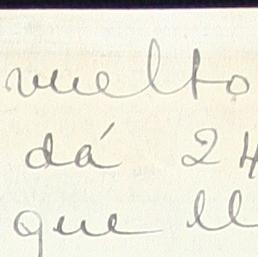 vuelto
dá 24
que ll